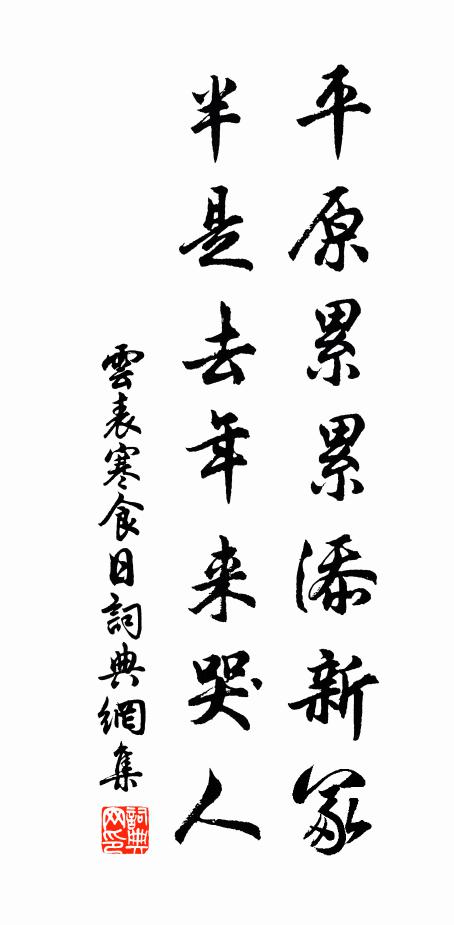 平原累累添新冢
半是去年来哭人
雲表寒食日詞典網集
詞典網印